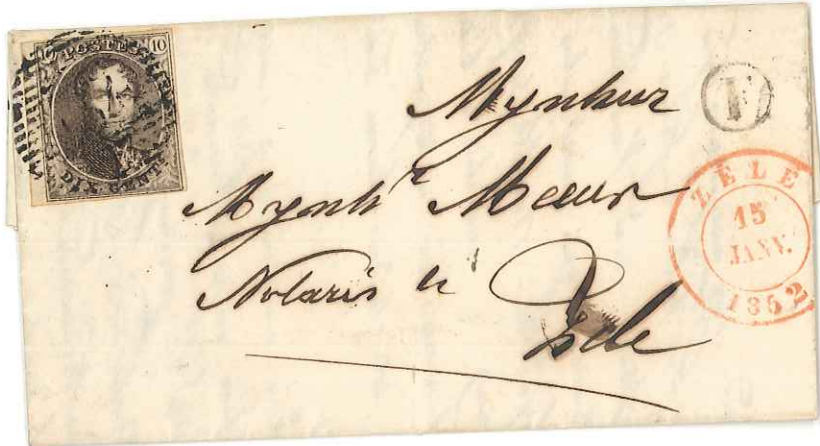 POSTES
10
DIX CENTS
Mynheer
F
Mynhr Meeus
Notaris te
Zele
ZELE
15
JANV.
1852